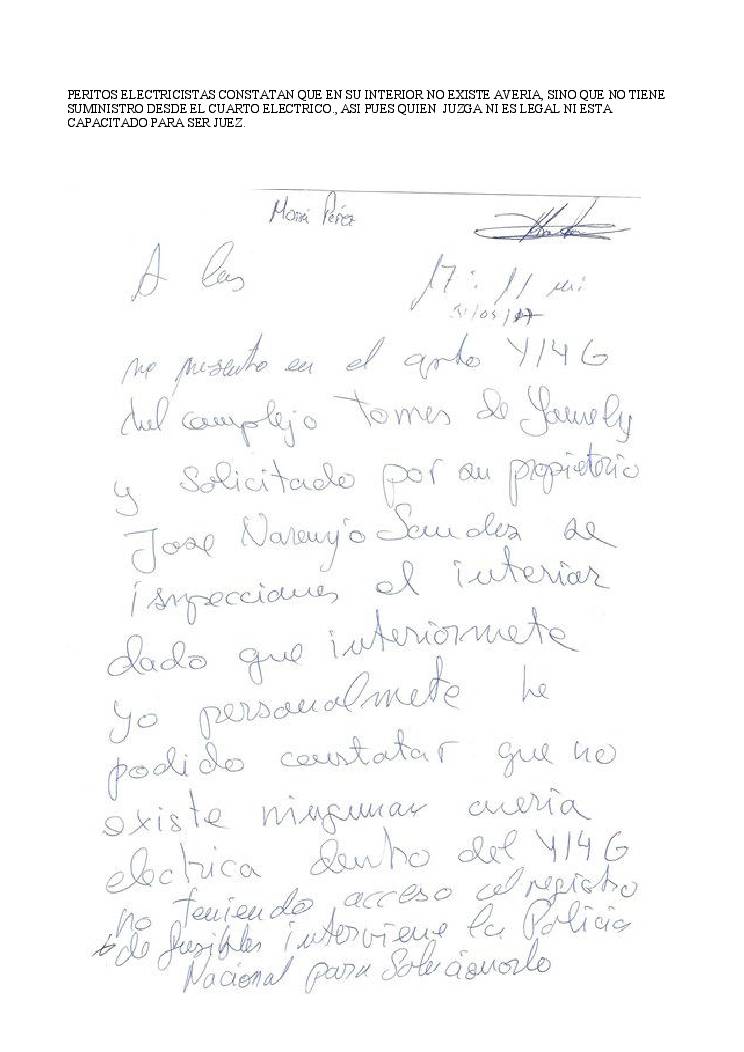 PERITOS ELECTRICISTAS CONSTATAN QUE EN SU INTERIOR NO EXISTE AVERIA, SINO QUE NO TIENE
SUMINISTRO DESDE EL CUARTO ELECTRICO., ASI PUES QUIEN JUZGA NI ES LEGAL NI ESTA
CAPACITADO PARA SER JUEZ.
Pérez
A las 17:11
me presento en el apto 414G
del complejo Torres de Yomely
y solicitado por su propietario
Jose Naranjo Sanchez se
inspecciona el interior
dado que interiormete
yo personalmete he
podido constatar que no
existe ningunar averia
electrica dentro del 414G
no teniendo acceso al registro
de fusibles interviene la Policia
Nacional para Solucionarlo